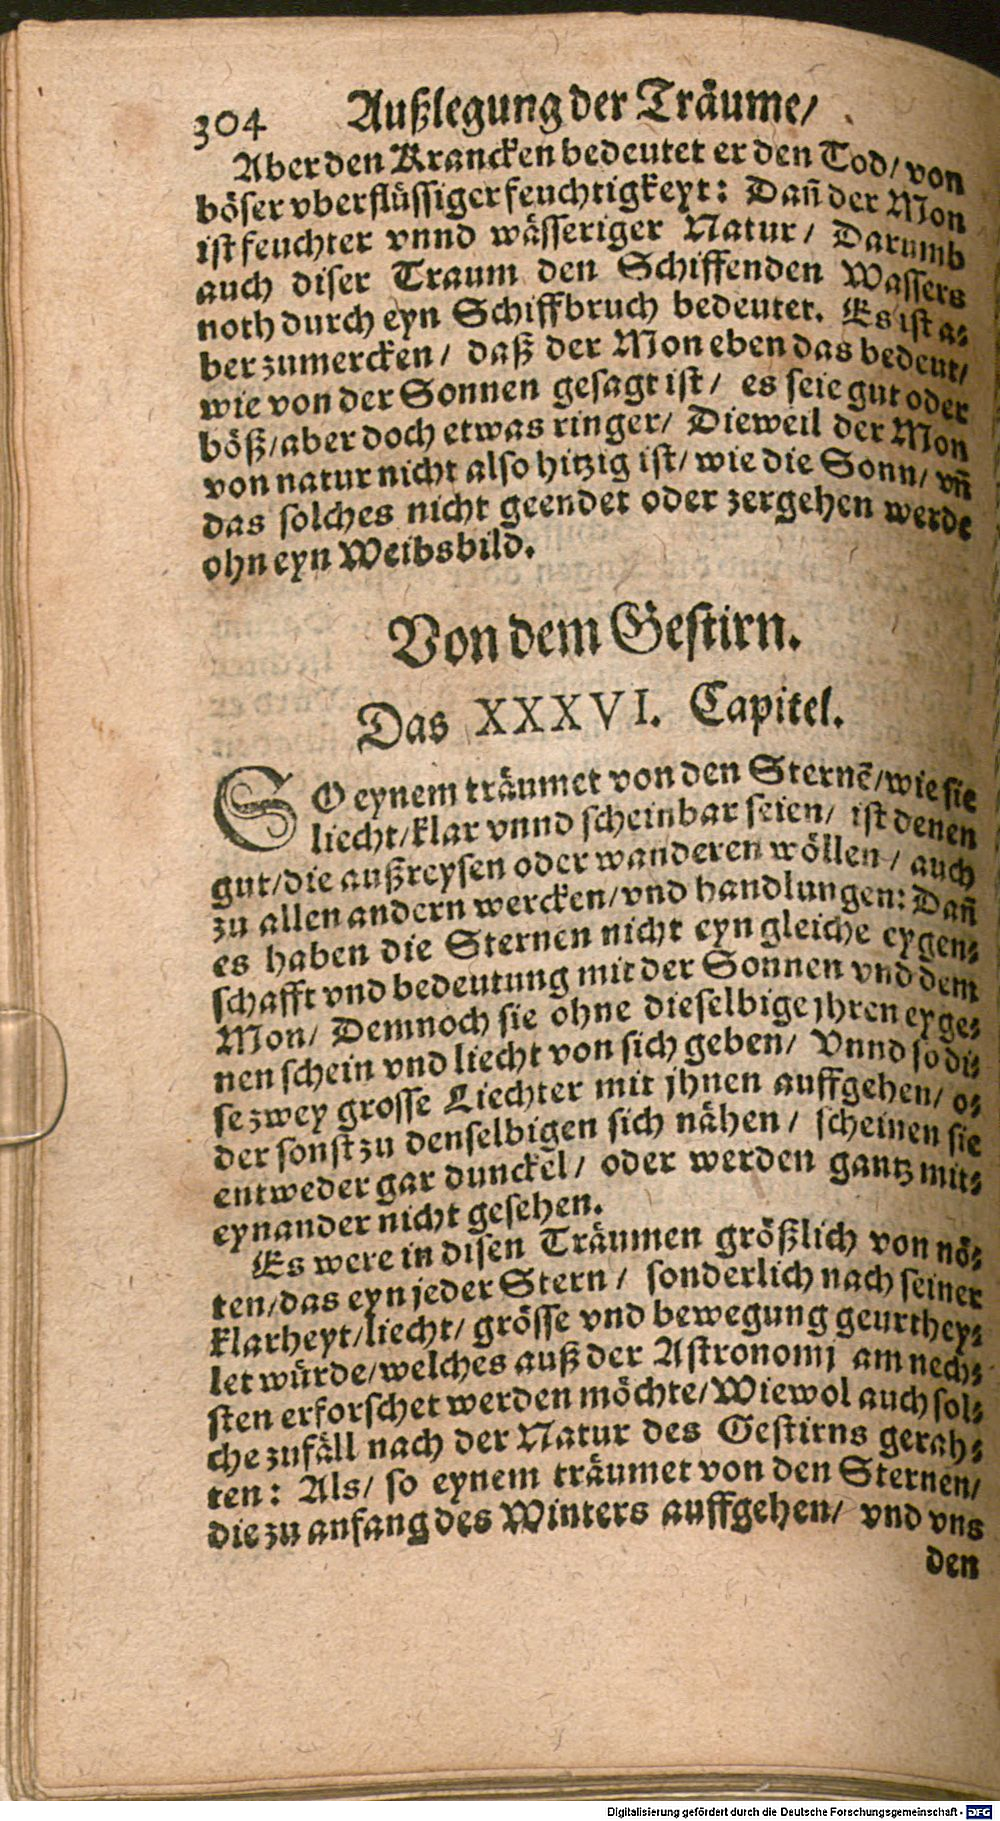 304 Außlegung der Träume/
Aber den Krancken bedeutet er den Tod/ von
böser vberflüssiger feuchtigkeyt: Dañ der Mon
ist feuchter vnnd wässeriger Natur/ Darumb
auch diser Traum den Schiffenden Wassers
noth durch eyn Schiffbruch bedeutet. Es ist a⸗
ber zumercken/ daß der Mon eben das bedeut/
wie von der Sonnen gesagt ist/ es seie gut oder
böß/ aber doch etwas ringer/ Dieweil der Mon
von natur nicht also hitzig ist/ wie die Sonn/ vñ
das solches nicht geendet oder zergehen werde
ohn eyn Weibsbild.
Von dem Gestirn.
Das XXXVI. Capitel.
SO eynem träumet von den Sternẽ/ wie sie
liecht/ klar vnnd scheinbar seien/ ist denen
gut/ die außreysen oder wanderen wöllen/ auch
zu allen andern wercken/ vnd handlungen: Dañ
es haben die Sternen nicht eyn gleiche eygen⸗
schafft vnd bedeutung mit der Sonnen vnd dem
Mon/ Demnoch sie ohne dieselbige jhren eyge⸗
nen schein vnd liecht von sich geben/ Vnnd so di⸗
se zwey grosse Liechter mit jhnen auffgehen/ o⸗
der sonst zu denselbigen sich nähen/ scheinen sie
entweder gar dunckel/ oder werden gantz mit⸗
eynander nicht gesehen.
Es were in disen Träumen größlich von nö⸗
ten/ das eyn jeder Stern/ sonderlich nach seiner
klarheyt/ liecht/ grösse vnd bewegung geurthey⸗
let würde/ welches auß der Astronomj am nech⸗
sten erforschet werden möchte/ Wiewol auch sol⸗
che zufäll nach der Natur des Gestirns gerah⸗
ten: Als/ so eynem träumet von den Sternen/
die zu anfang des Winters auffgehen/ vnd vns
den
Digitalisierung gefördert durch die Deutsche Forschungsgemeinschaft - DFG